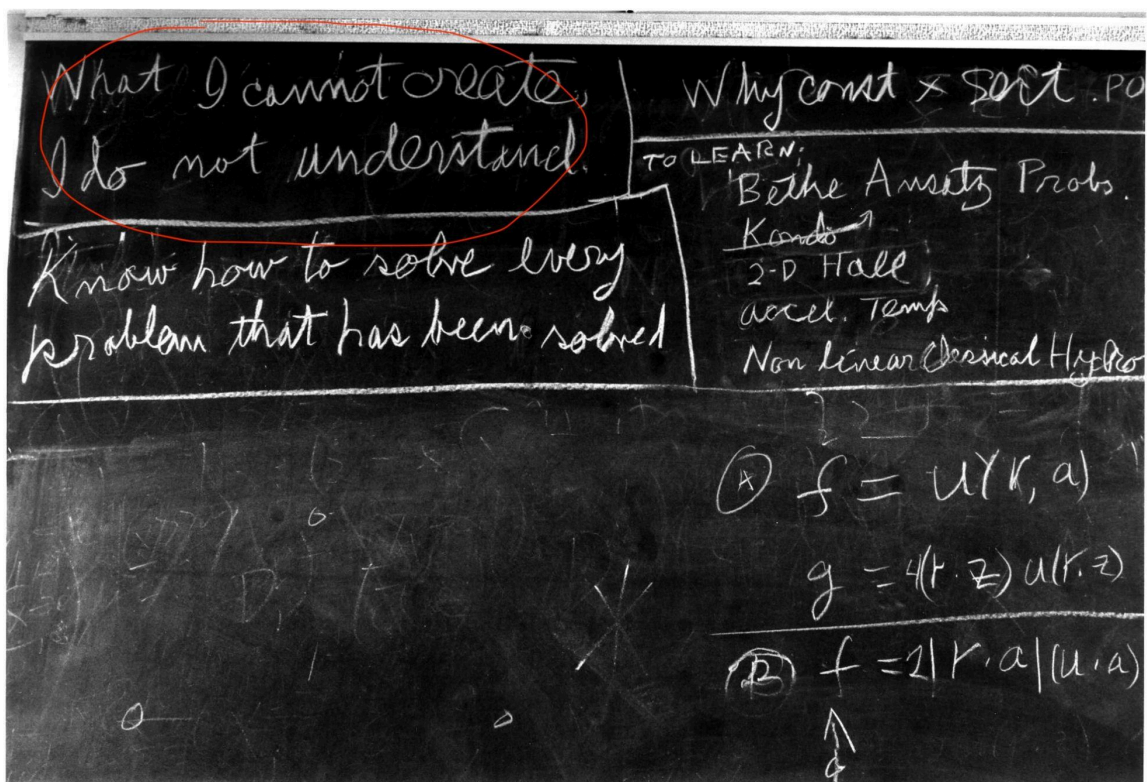 What I cannot create,
I do not understand.
Know how to solve every
problem that has been solved
Why const × sort . PO
TO LEARN:
Bethe Ansatz Probs.
Kondo
2-D Hall
accel. Temp
Non linear Classical Hydro
(A) f = u(r, a)
g = 4(r·z) u(r·z)
(B) f = 2|r·a|(u·a)